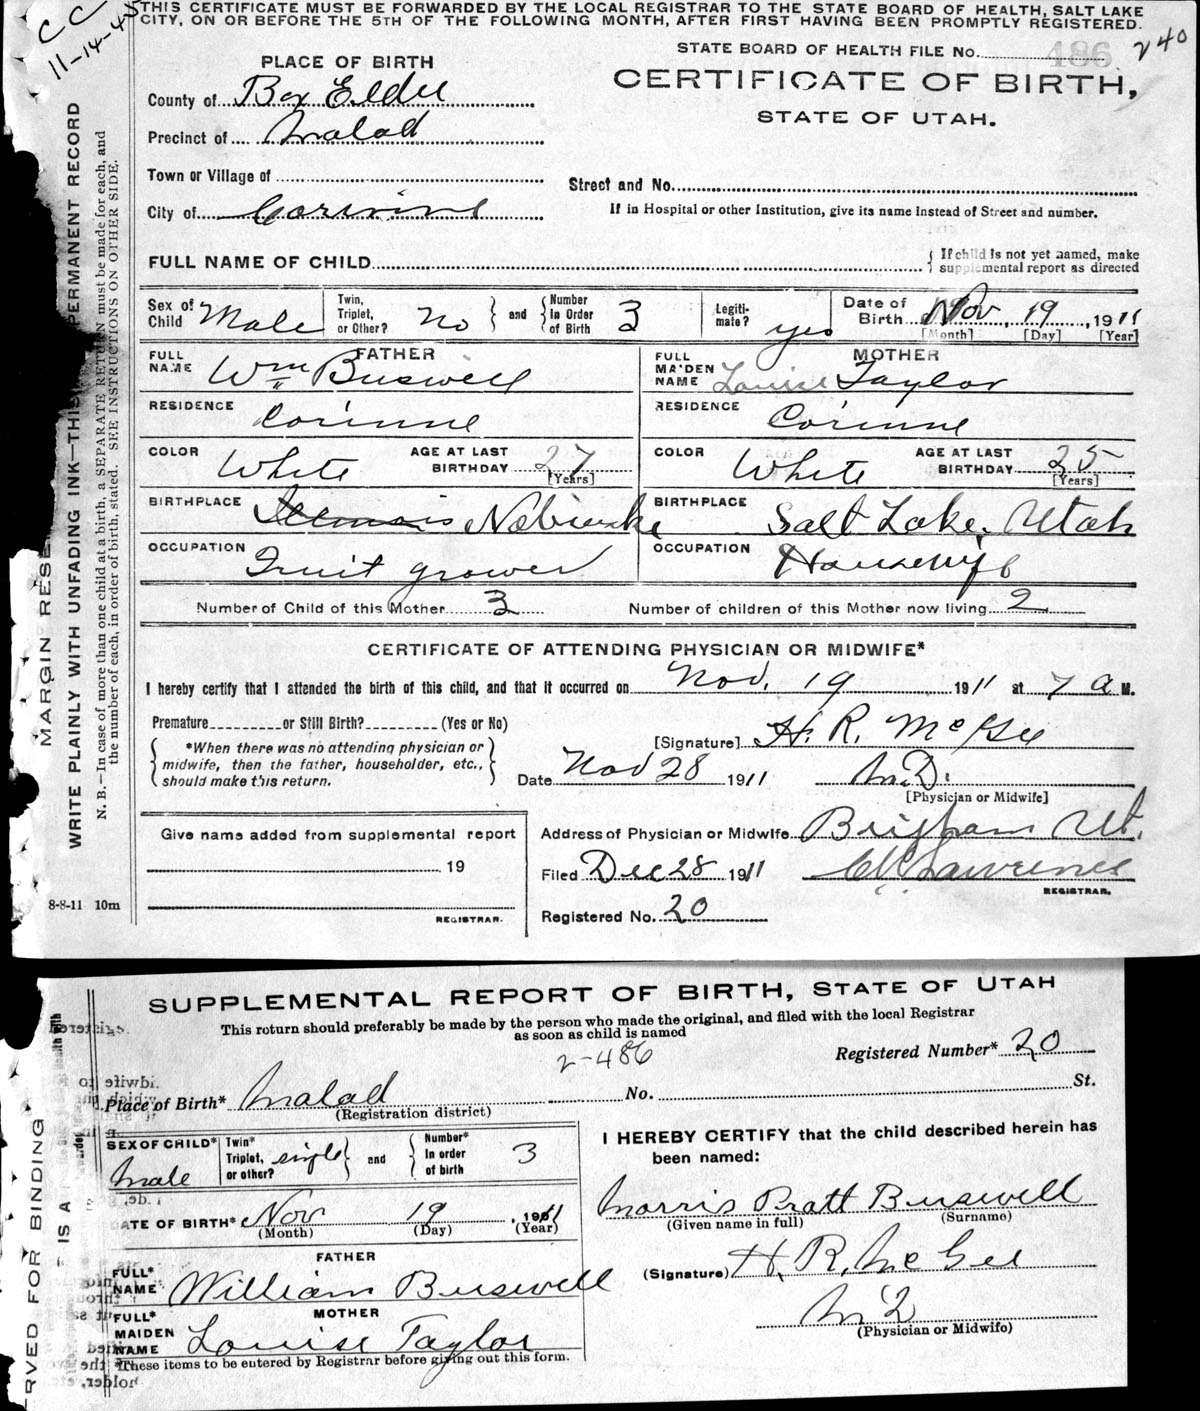 C C
11-14-45
THIS CERTIFICATE MUST BE FORWARDED BY THE LOCAL REGISTRAR TO THE STATE BOARD OF HEALTH, SALT LAKE
CITY, ON OR BEFORE THE 5TH OF THE FOLLOWING MONTH, AFTER FIRST HAVING BEEN PROMPTLY REGISTERED.
STATE BOARD OF HEALTH FILE No. 486 240
PLACE OF BIRTH
CERTIFICATE OF BIRTH,
STATE OF UTAH.
County of Box Elder
Precinct of Malad
Town or Village of
Street and No.
City of Corinne
If in Hospital or other Institution, give its name Instead of Street and number.
FULL NAME OF CHILD
If child is not yet named, make
supplemental report as directed
Sex of Child Male
Twin, Triplet, or Other? No and Number In Order of Birth 3
Legiti-mate? yes
Date of Birth Nov, 19, 1911
[Month] [Day] [Year]
FATHER MOTHER
FULL NAME Wm Buswell
FULL MAIDEN NAME Louise Taylor
RESIDENCE Corinne
RESIDENCE Corinne
COLOR White AGE AT LAST BIRTHDAY 27 [Years]
COLOR White AGE AT LAST BIRTHDAY 25 [Years]
BIRTHPLACE Illinois Nebraska
BIRTHPLACE Salt Lake, Utah
OCCUPATION Fruit grower
OCCUPATION Housewife
Number of Child of this Mother 3 Number of children of this Mother now living 2
CERTIFICATE OF ATTENDING PHYSICIAN OR MIDWIFE*
I hereby certify that I attended the birth of this child, and that it occurred on Nov. 19 1911 at 7 a M.
Premature or Still Birth? (Yes or No)
*When there was no attending physician or
midwife, then the father, householder, etc.,
should make this return.
[Signature] H. R. McGee
Date Nov 28 1911 M.D.
[Physician or Midwife]
Give name added from supplemental report
19
REGISTRAR.
Address of Physician or Midwife Brigham Ut.
Filed Dec 28 1911 Lawrence
REGISTRAR.
Registered No. 20
8-8-11 10m
MARGIN RESE
WRITE PLAINLY WITH UNFADING INK—THIS PERMANENT RECORD
N. B.—In case of more than one child at a birth, a SEPARATE RETURN must be made for each, and
the number of each, in order of birth, stated. SEE INSTRUCTIONS ON OTHER SIDE.
SUPPLEMENTAL REPORT OF BIRTH, STATE OF UTAH
This return should preferably be made by the person who made the original, and filed with the local Registrar
as soon as child is named
2-486
Registered Number* 20
Place of Birth* Malad No. St.
(Registration district)
SEX OF CHILD* Male
Twin* Triplet, or other? single and Number* In order of birth 3
DATE OF BIRTH* Nov 19, 1911
(Month) (Day) (Year)
FATHER
FULL* NAME William Buswell
MOTHER
FULL* MAIDEN NAME Louise Taylor
*These items to be entered by Registrar before giving out this form.
I HEREBY CERTIFY that the child described herein has
been named:
Morris Pratt Buswell
(Given name in full) (Surname)
(Signature) H. R. McGee
MD
(Physician or Midwife)
RVED FOR BINDING
IS A